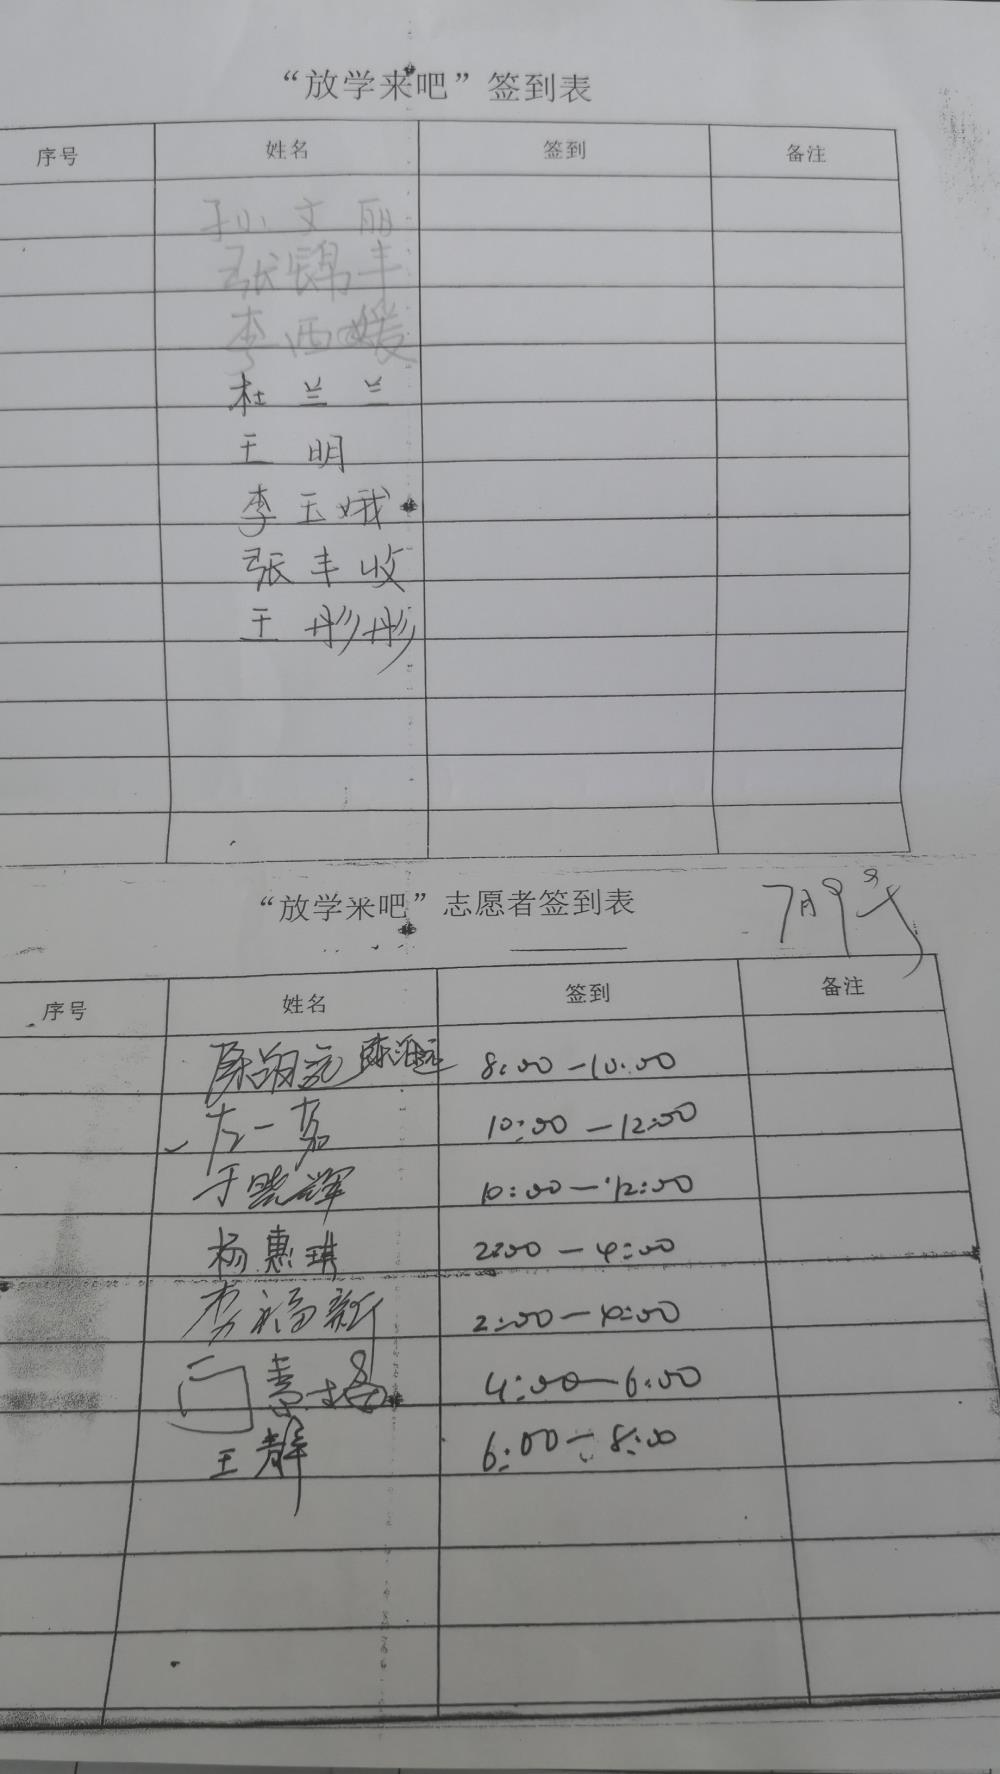 “放学来吧”签到表
序号 姓名 签到 备注
孙文丽
张锦丰
李西媛
杜兰兰
王明
李玉娥
张丰收
王彤彤
“放学来吧”志愿者签到表 7月9
序号 姓名 签到 备注
8:00-10:00
左一嘉 10:00-12:00
于晓辉 10:00-12:00
杨惠琪 2:00-4:00
李福新 2:00-4:00
4:00-6:00
王静 6:00-8:00